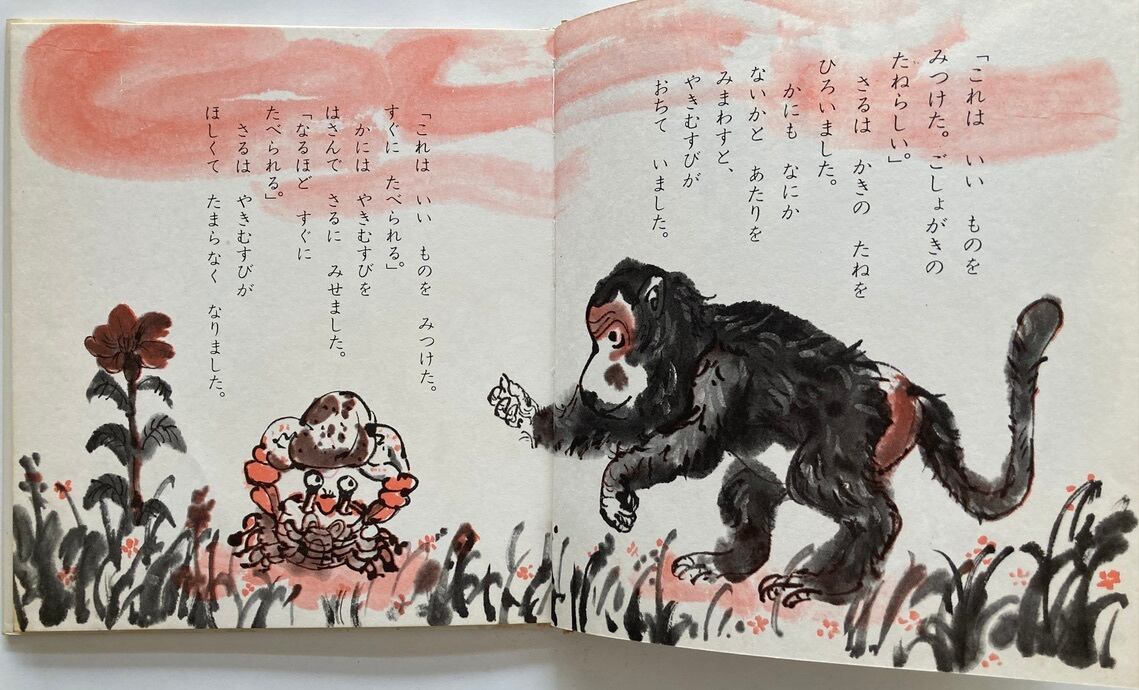 「これは いい ものを
みつけた。ごしょがきの
たねらしい。」
さるは かきの たねを
ひろいました。
かにも なにか
ないかと あたりを
みまわすと、
やきむすびが
おちて いました。
「これは いい ものを みつけた。
すぐに たべられる。」
かには やきむすびを
はさんで さるに みせました。
「なるほど すぐに
たべられる。」
さるは やきむすびが
ほしくて たまらなく なりました。